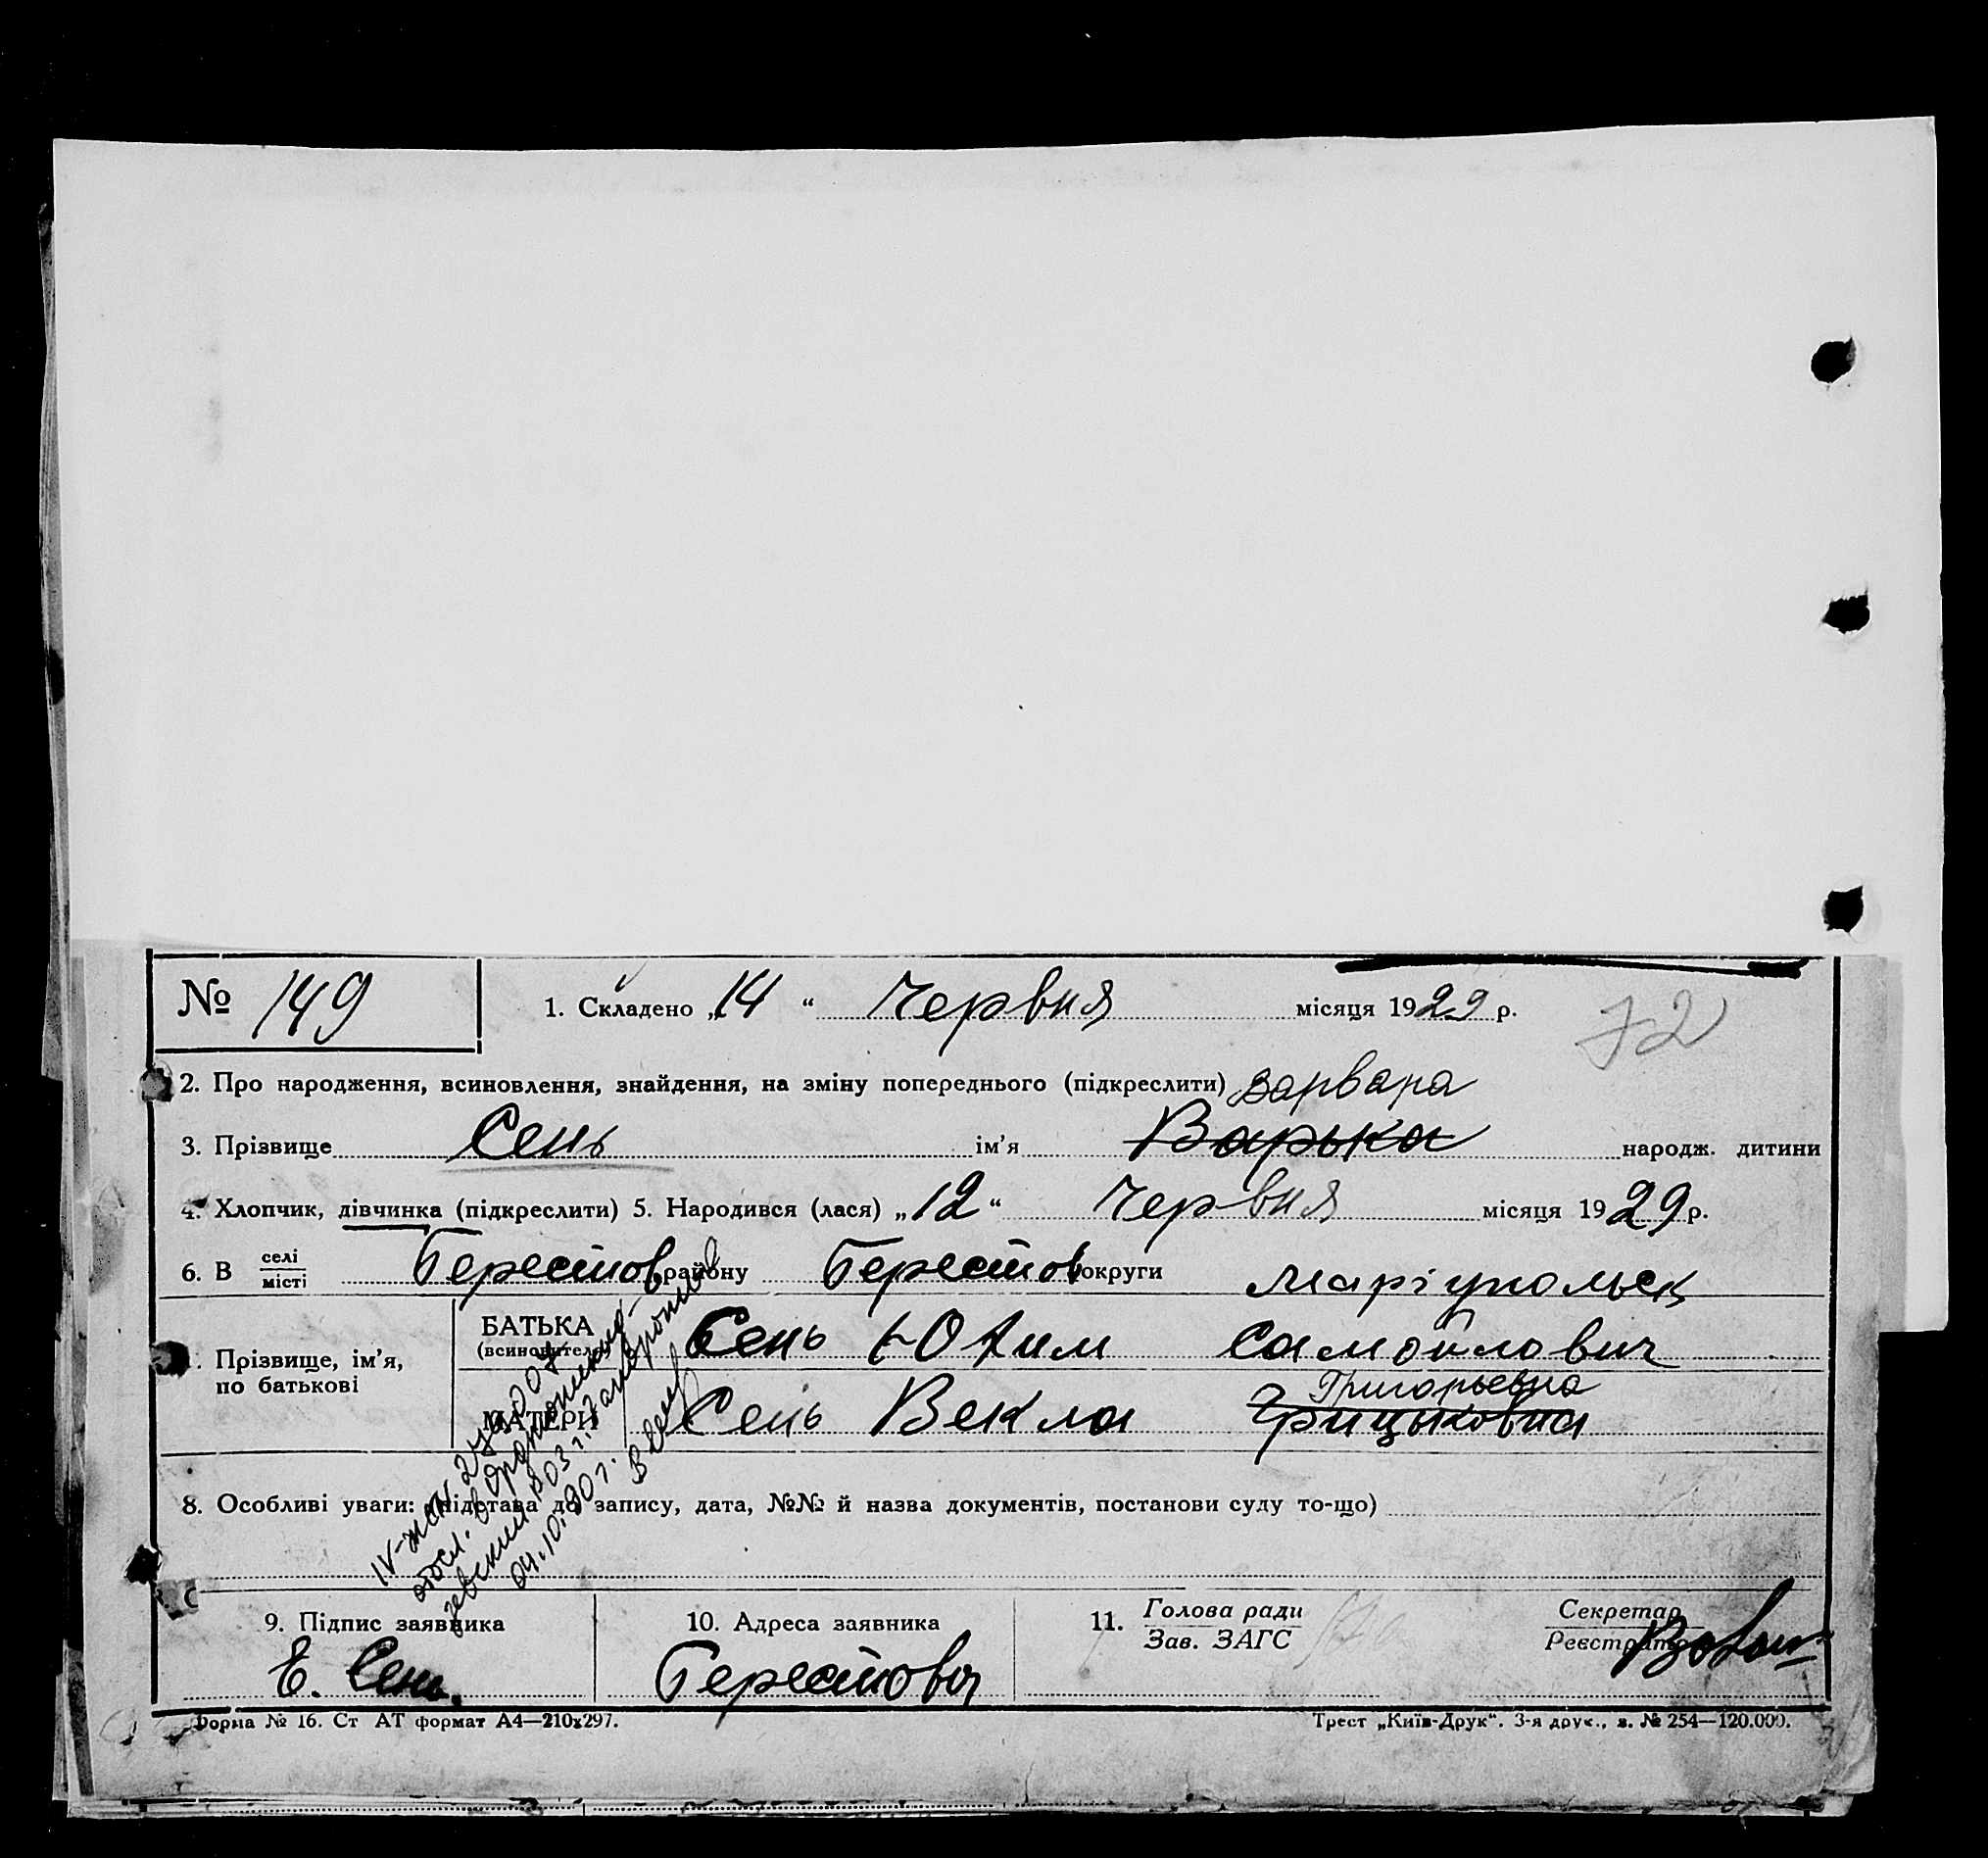 № 149
1. Складено „14“ Червня місяця 1929 р.
72
2. Про народження, всиновлення, знайдення, на зміну попереднього (підкреслити) Варвара
3. Прізвище Сень ім’я Варька народж. дитини
4. Хлопчик, дівчинка (підкреслити) 5. Народився (лася) „12“ Червня місяця 1929 р.
6. В селі місті Берестов району Берестов округи Маріупольск
Прізвище, ім’я, по батькові
БАТЬКА (всиновителя) Сень Юхим Самойлович
Григорьевна
МАТЕРИ Сень Векла Грицьковна
8. Особливі уваги: (підстава до запису, дата, №№ й назва документів, постанови суду то-що)
отосл. в
04.10.90 г.
9. Підпис заявника
10. Адреса заявника
11. Голова ради
Зав. ЗАГС
Секретар
Реєстратор
Е. Сень.
Берестова
Форма № 16. Ст АТ формат А4—210х297.
Трест „Київ-Друк“. 3-я друк., з. № 254—120.000.